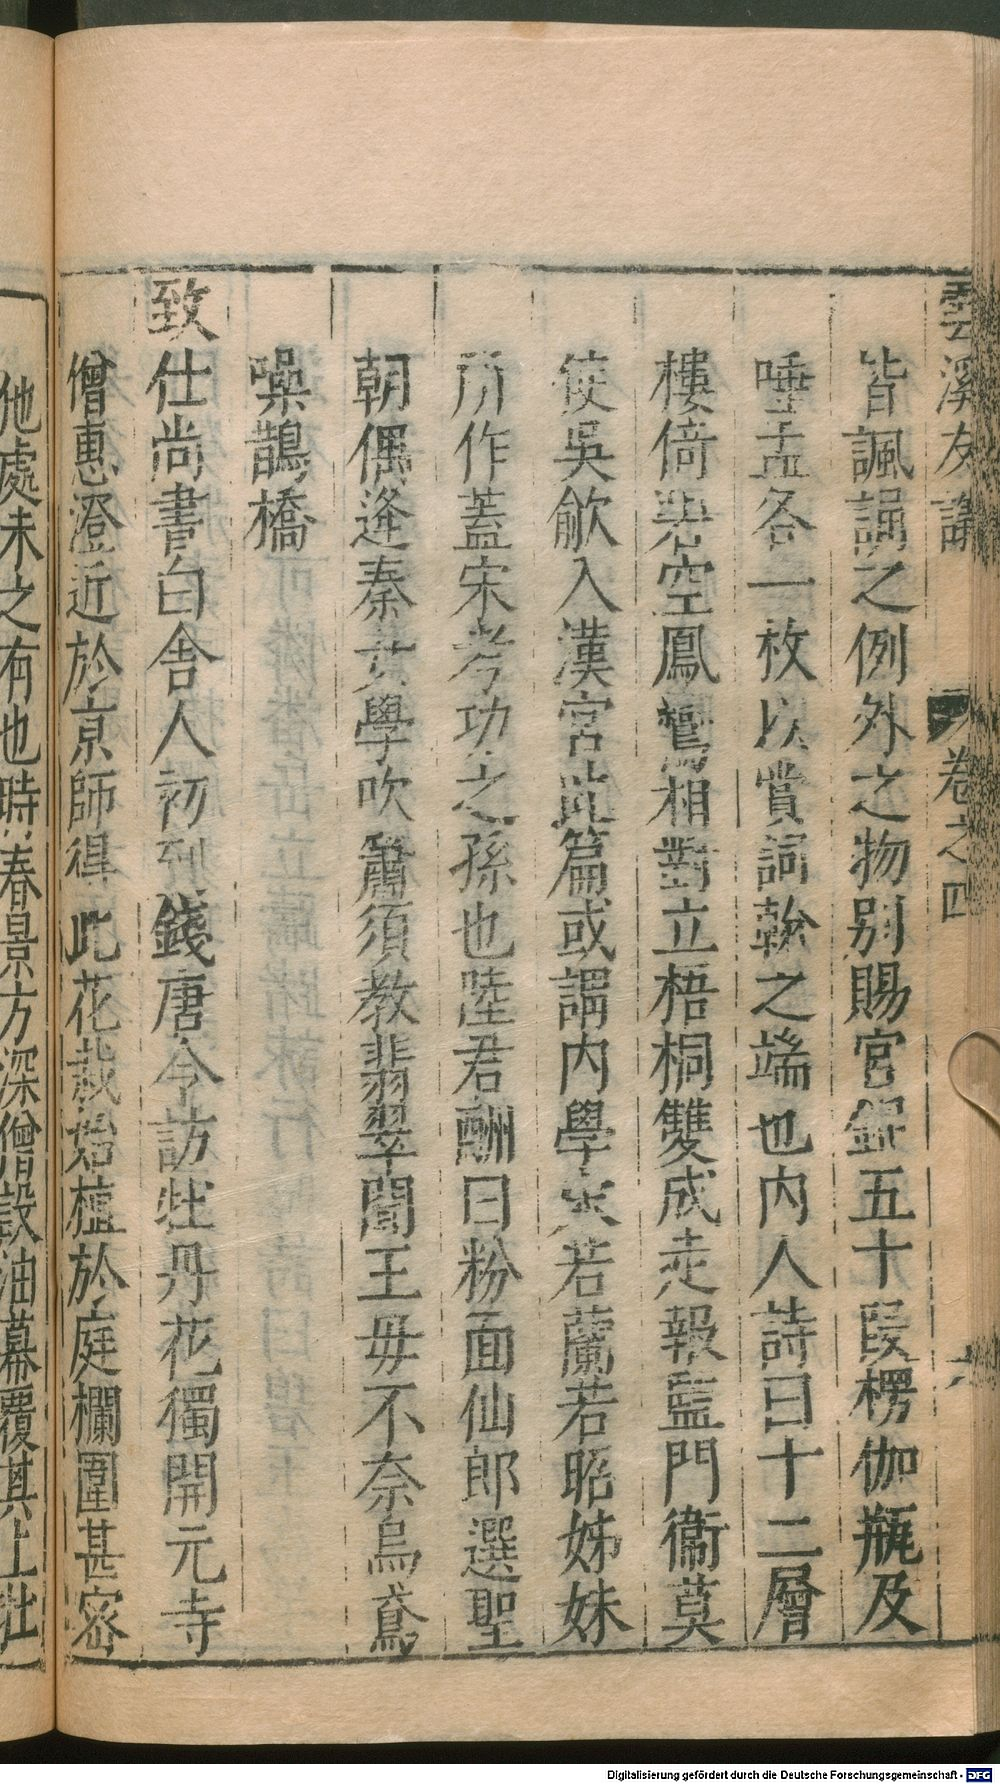 雲溪友議
卷之四
皆諷誦之例外之物别賜宮銀五十段楞伽瓶及
唾盂各一枚以賞詞翰之端也内人詩曰十二層
樓倚翠空鳳鸞相對立梧桐雙成走報監門衞莫
使吳歈入漢宮此篇或謂内學宋若蘭若昭姊妹
所作蓋宋考功之孫也陸君酬曰粉面仙郎選聖
朝偶逢秦女學吹簫須教翡翠聞王毋不奈烏鳶
噪鵲橋
致仕尚書白舎人初到錢唐令訪牡丹花獨開元寺
僧惠澄近於京師得此花栽始植於庭欄圍甚密
他處未之有也時春景方深僧設油幕覆其上牡
Digitalisierung gefördert durch die Deutsche Forschungsgemeinschaft - DFG